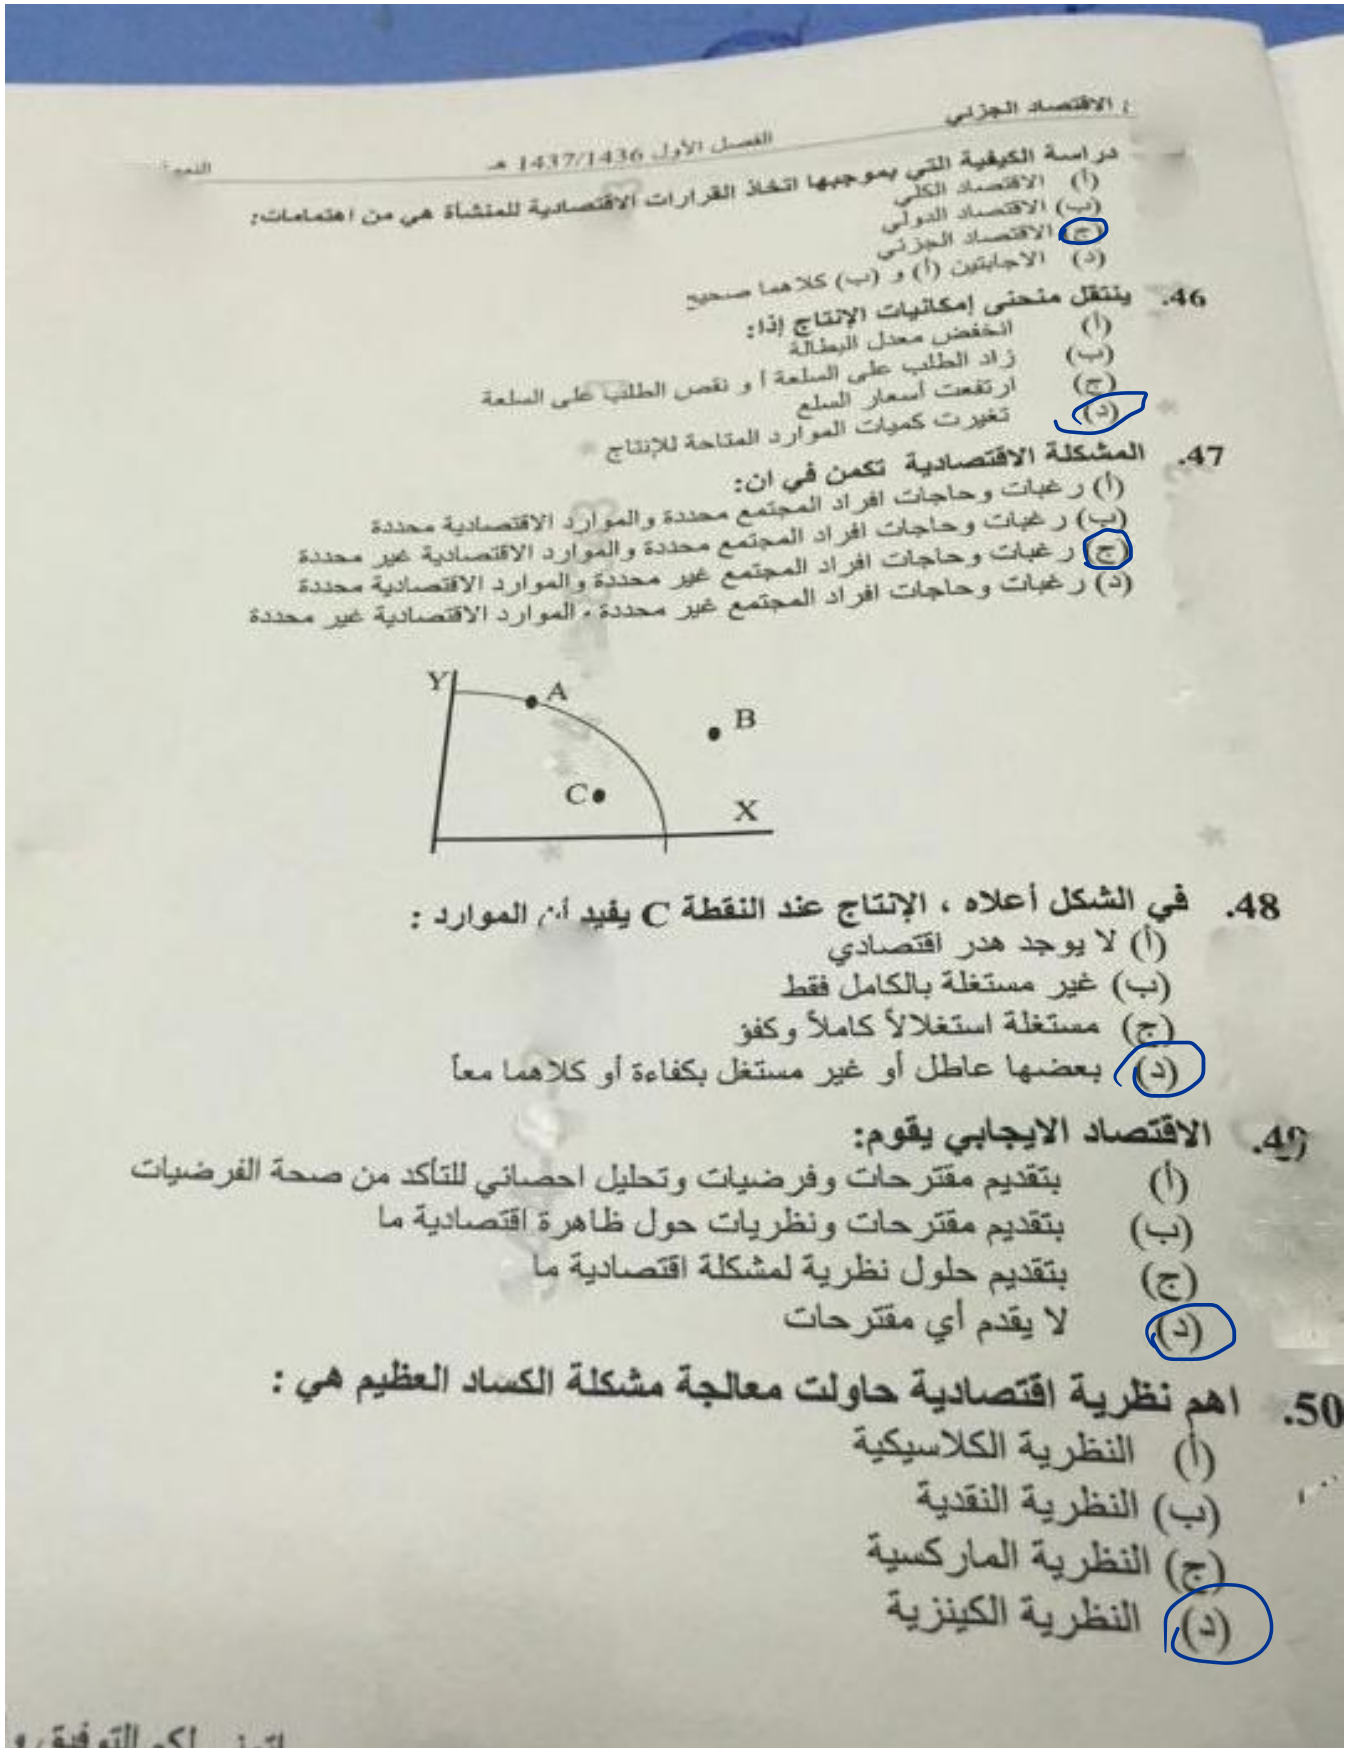 : الاقتصاد الجزئي
الفصل الأول 1437/1436 هـ
دراسة الكيفية التي بموجبها اتخاذ القرارات الاقتصادية للمنشأة هي من اهتمامات:
(أ) الاقتصاد الكلي
(ب) الاقتصاد الدولي
(ج) الاقتصاد الجزئي
(د) الاجابتين (أ) و (ب) كلاهما صحيح
46. ينتقل منحنى إمكانيات الإنتاج إذا:
(أ) انخفض معدل البطالة
(ب) زاد الطلب على السلعة أ و نقص الطلب على السلعة
(ج) ارتفعت أسعار السلع
(د) تغيرت كميات الموارد المتاحة للإنتاج
47. المشكلة الاقتصادية تكمن في ان:
(أ) رغبات وحاجات افراد المجتمع محددة والموارد الاقتصادية محددة
(ب) رغبات وحاجات افراد المجتمع محددة والموارد الاقتصادية غير محددة
(ج) رغبات وحاجات افراد المجتمع غير محددة والموارد الاقتصادية محددة
(د) رغبات وحاجات افراد المجتمع غير محددة، الموارد الاقتصادية غير محددة
Y
A
B
C
X
48. في الشكل أعلاه ، الإنتاج عند النقطة C يفيد أن الموارد :
(أ) لا يوجد هدر اقتصادي
(ب) غير مستغلة بالكامل فقط
(ج) مستغلة استغلالاً كاملاً وكفؤ
(د) بعضها عاطل أو غير مستغل بكفاءة أو كلاهما معاً
49. الاقتصاد الايجابي يقوم:
(أ) بتقديم مقترحات وفرضيات وتحليل احصائي للتأكد من صحة الفرضيات
(ب) بتقديم مقترحات ونظريات حول ظاهرة اقتصادية ما
(ج) بتقديم حلول نظرية لمشكلة اقتصادية ما
(د) لا يقدم أي مقترحات
50. اهم نظرية اقتصادية حاولت معالجة مشكلة الكساد العظيم هي :
(أ) النظرية الكلاسيكية
(ب) النظرية النقدية
(ج) النظرية الماركسية
(د) النظرية الكينزية
لكم التوفيق و